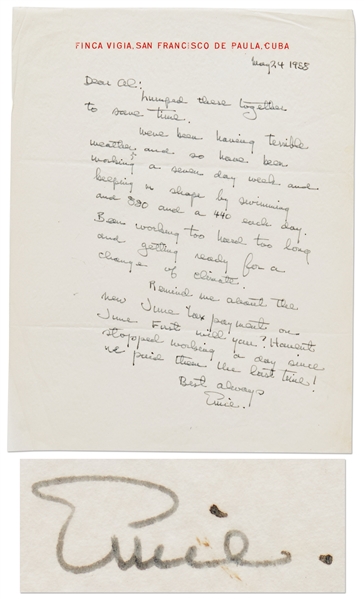 FINCA VIGIA, SAN FRANCISCO DE PAULA, CUBA
May 24 1958
Dear Al:
Lumped these together
to save time.
We've been having terrible
weather and so have been
working a seven day week and
keeping in shape by swimming
and 880 and a 440 each day.
Been working too hard too long
and getting ready for a
change of climate.
Remind me about the
new June Tax payment on
June First will you? Haven't
stopped working a day since
we paid them the last time!
Best always
Ernie.
Ernie.